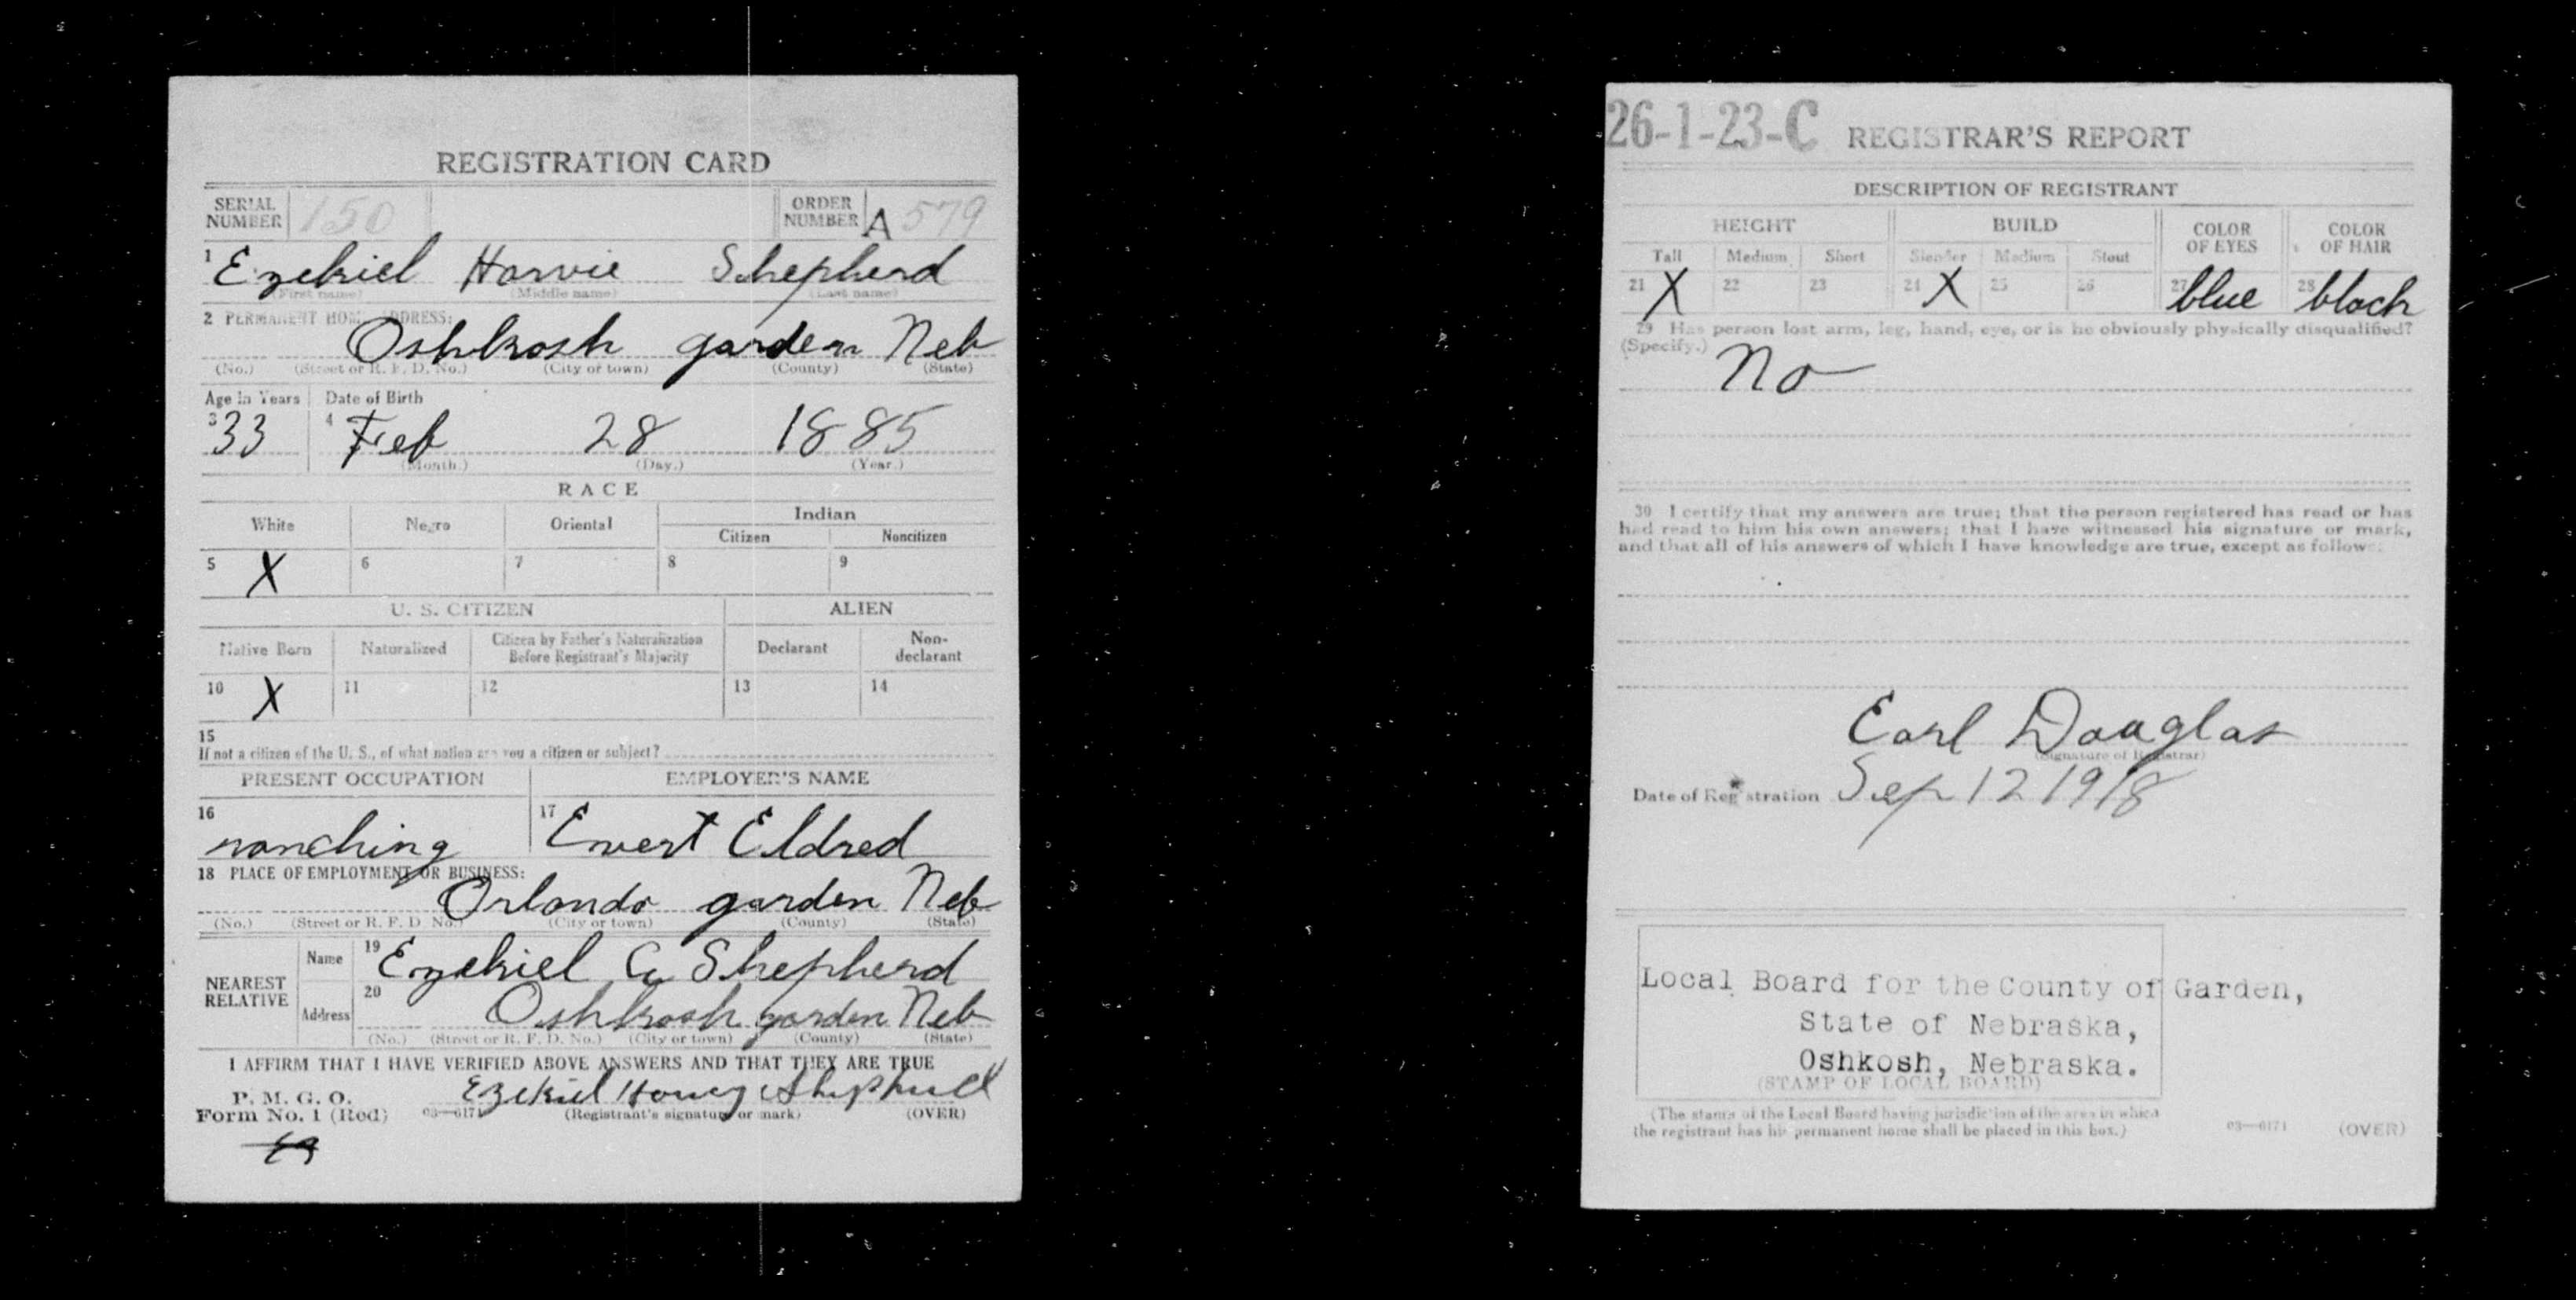 REGISTRATION CARD
SERIAL NUMBER 150 ORDER NUMBER A 579
1 Ezekiel Harvie Shepherd
(First name) (Middle name) (Last name)
2 PERMANENT HOME ADDRESS:
Oshkosh garden Neb
(No.) (Street or R. F. D. No.) (City or town) (County) (State)
Age in Years Date of Birth
3 33 4 Feb 28 1885
(Month.) (Day.) (Year.)
RACE
White Negro Oriental Indian
Citizen Noncitizen
5 X 6 7 8 9
U. S. CITIZEN ALIEN
Native Born Naturalized Citizen by Father's Naturalization Before Registrant's Majority Declarant Non-declarant
10 X 11 12 13 14
15
If not a citizen of the U. S., of what nation are you a citizen or subject?
PRESENT OCCUPATION EMPLOYER'S NAME
16 ranching 17 Evert Eldred
18 PLACE OF EMPLOYMENT OR BUSINESS:
Orlando garden Neb
(No.) (Street or R. F. D. No.) (City or town) (County) (State)
NEAREST RELATIVE
Name 19 Ezekiel Shepherd
Address 20 Oshkosh garden Neb
(No.) (Street or R. F. D. No.) (City or town) (County) (State)
I AFFIRM THAT I HAVE VERIFIED ABOVE ANSWERS AND THAT THEY ARE TRUE
P. M. G. O.
Form No. 1 (Red) 03—6171 Ezekiel Shepherd
(Registrant's signature or mark) (OVER)
26-1-23-C REGISTRAR'S REPORT
DESCRIPTION OF REGISTRANT
HEIGHT BUILD COLOR OF EYES COLOR OF HAIR
Tall Medium Short Slender Medium Stout
21 X 22 23 24 X 25 26 27 blue 28 black
29 Has person lost arm, leg, hand, eye, or is he obviously physically disqualified?
(Specify.) No
30 I certify that my answers are true; that the person registered has read or has
had read to him his own answers; that I have witnessed his signature or mark,
and that all of his answers of which I have knowledge are true, except as follows:
Earl Douglas
(Signature of Registrar)
Date of Registration Sep 12 1918
Local Board for the County of Garden,
State of Nebraska,
Oshkosh, Nebraska.
(STAMP OF LOCAL BOARD)
(The stamp of the Local Board having jurisdiction of the area in which
the registrant has his permanent home shall be placed in this box.)
03—6171 (OVER)